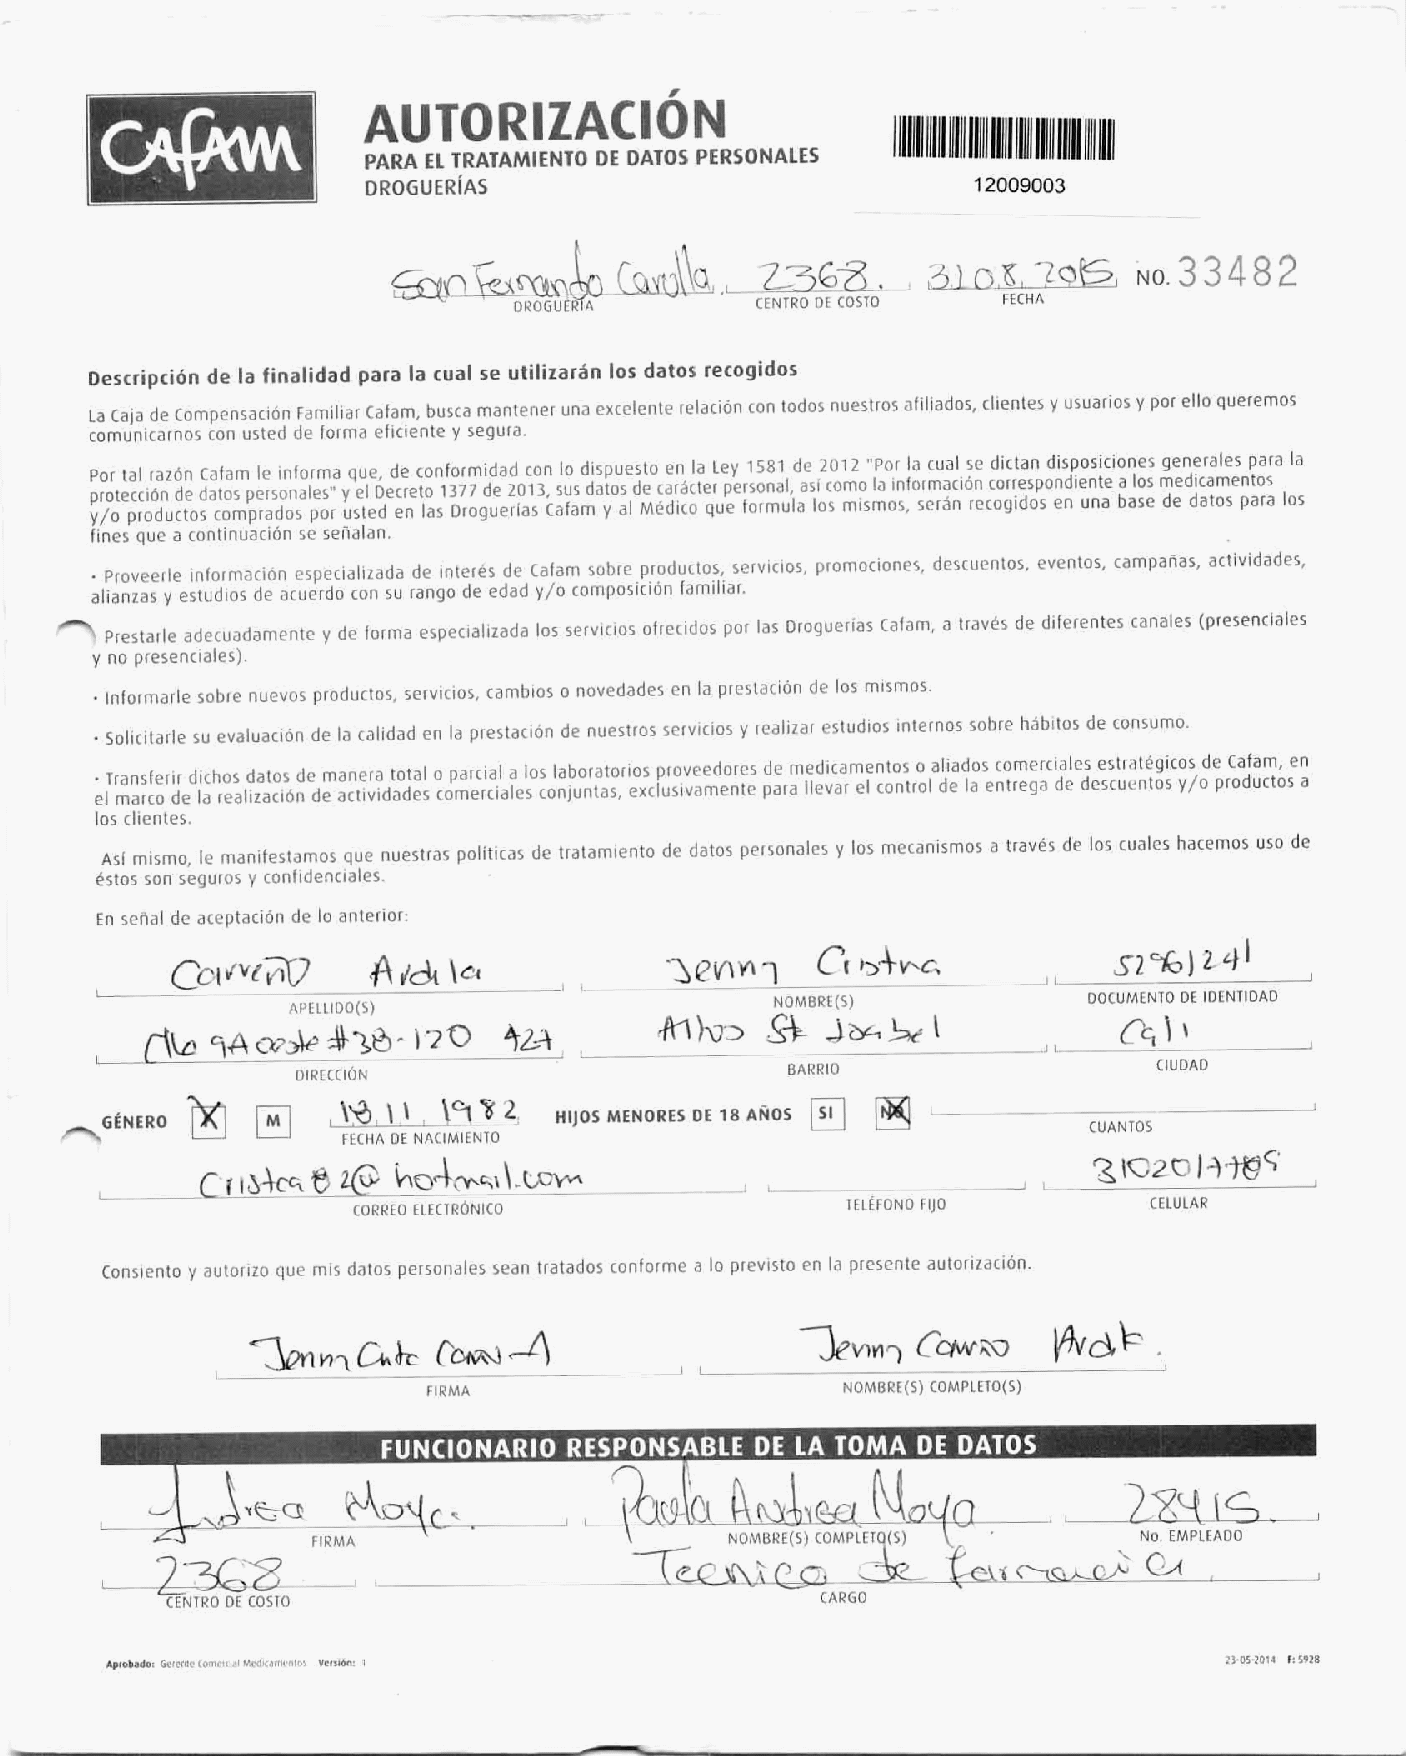 CAFAM
AUTORIZACIÓN
PARA EL TRATAMIENTO DE DATOS PERSONALES
DROGUERÍAS
12009003
San Fernando 2368. 31.08.2015 NO. 33482
DROGUERÍA CENTRO DE COSTO FECHA
Descripción de la finalidad para la cual se utilizarán los datos recogidos
La Caja de Compensación Familiar Cafam, busca mantener una excelente relación con todos nuestros afiliados, clientes y usuarios y por ello queremos
comunicarnos con usted de forma eficiente y segura.
Por tal razón Cafam le informa que, de conformidad con lo dispuesto en la Ley 1581 de 2012 "Por la cual se dictan disposiciones generales para la
protección de datos personales" y el Decreto 1377 de 2013, sus datos de carácter personal, así como la información correspondiente a los medicamentos
y/o productos comprados por usted en las Droguerías Cafam y al Médico que formula los mismos, serán recogidos en una base de datos para los
fines que a continuación se señalan.
· Proveerle información especializada de interés de Cafam sobre productos, servicios, promociones, descuentos, eventos, campañas, actividades,
alianzas y estudios de acuerdo con su rango de edad y/o composición familiar.
Prestarle adecuadamente y de forma especializada los servicios ofrecidos por las Droguerías Cafam, a través de diferentes canales (presenciales
y no presenciales).
· Informarle sobre nuevos productos, servicios, cambios o novedades en la prestación de los mismos.
· Solicitarle su evaluación de la calidad en la prestación de nuestros servicios y realizar estudios internos sobre hábitos de consumo.
· Transferir dichos datos de manera total o parcial a los laboratorios proveedores de medicamentos o aliados comerciales estratégicos de Cafam, en
el marco de la realización de actividades comerciales conjuntas, exclusivamente para llevar el control de la entrega de descuentos y/o productos a
los clientes.
Así mismo, le manifestamos que nuestras políticas de tratamiento de datos personales y los mecanismos a través de los cuales hacemos uso de
éstos son seguros y confidenciales.
En señal de aceptación de lo anterior:
Carreño Ardila Jenny Cristna 52961241
APELLIDO(S) NOMBRE(S) DOCUMENTO DE IDENTIDAD
9A oeste #38-120 427 Altos St Isabel Cali
DIRECCIÓN BARRIO CIUDAD
GÉNERO X M 18 11 1982 HIJOS MENORES DE 18 AÑOS SI NO
FECHA DE NACIMIENTO CUANTOS
Cristca82@hotmail.com
CORREO ELECTRÓNICO TELÉFONO FIJO CELULAR
Consiento y autorizo que mis datos personales sean tratados conforme a lo previsto en la presente autorización.
Jenny
FIRMA NOMBRE(S) COMPLETO(S)
FUNCIONARIO RESPONSABLE DE LA TOMA DE DATOS
Andrea Moya. Paola Andrea Moya 28415.
FIRMA NOMBRE(S) COMPLETO(S) No. EMPLEADO
2368 Tecnico de farmacia
CENTRO DE COSTO CARGO
Aprobado: Gerente Comercial Medicamentos Versión: 1 23-05-2014 F: 5928